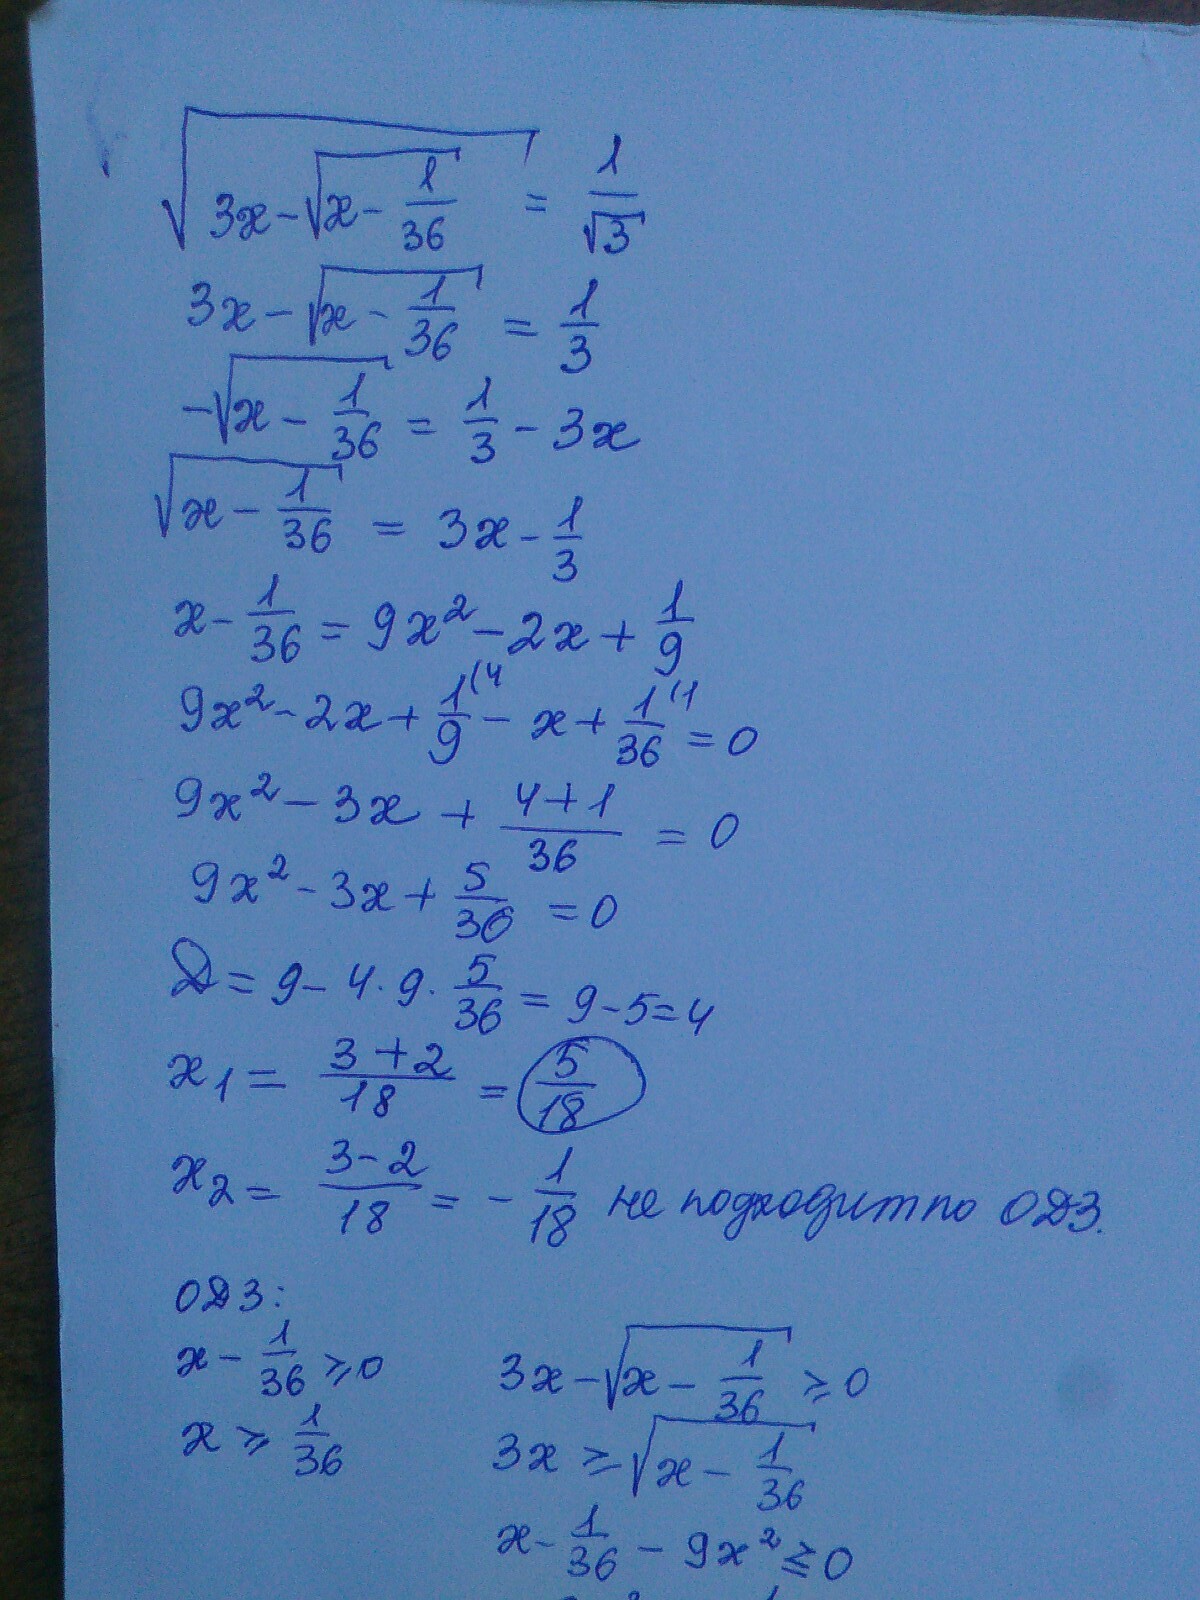 √(3x-√(x-1/36)) = 1/√3
3x-√(x-1/36) = 1/3
-√(x-1/36) = 1/3 - 3x
√(x-1/36) = 3x-1/3
x-1/36 = 9x²-2x+1/9
9x²-2x+1/9(4 - x+1/36(1 = 0
9x²-3x+(4+1)/36 = 0
9x²-3x+5/36 = 0
Д = 9-4·9·5/36 = 9-5=4
x₁ = (3+2)/18 = 5/18
x₂ = (3-2)/18 = -1/18 не подходит по ОДЗ.
ОДЗ:
x-1/36 ≥ 0
x ≥ 1/36
3x-√(x-1/36) ≥ 0
3x ≥ √(x-1/36)
x-1/36 - 9x² ≥ 0